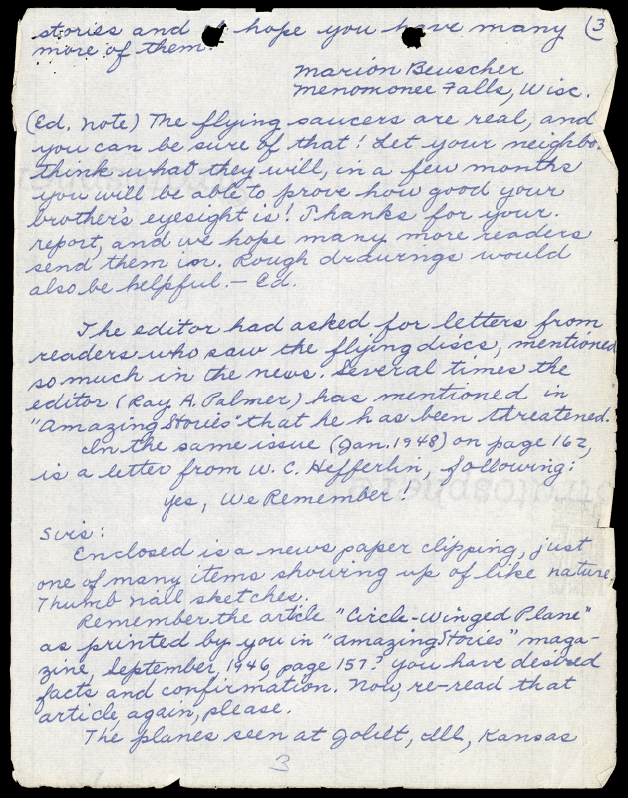 stories and I hope you have many (3
more of them.
Marion Beuscher
Menomonee Falls, Wisc.
(Ed. Note) The flying saucers are real, and
you can be sure of that! Let your neighbo.
think what they will, in a few months
you will be able to prove how good your
brother's eyesight is! Thanks for your
report, and we hope many more readers
send them in. Rough drawings would
also be helpful. — Ed.
The editor had asked for letters from
readers who saw the flying discs, mentioned
so much in the news. Several times the
editor (Ray A. Palmer) has mentioned in
"Amazing Stories" that he has been threatened.
In the same issue (Jan. 1948) on page 162,
is a letter from W. C. Hefferlin, following:
Yes, We Remember!
Sirs:
Enclosed is a news paper clipping, just
one of many items showing up of like nature.
Thumb nail sketches.
Remember the article "Circle-Winged Plane"
as printed by you in "Amazing Stories" maga-
zine, September, 1946, page 157? You have desired
facts and confirmation. Now, re-read that
article, again, please.
The planes seen at Joliet, Ill, Kansas
3